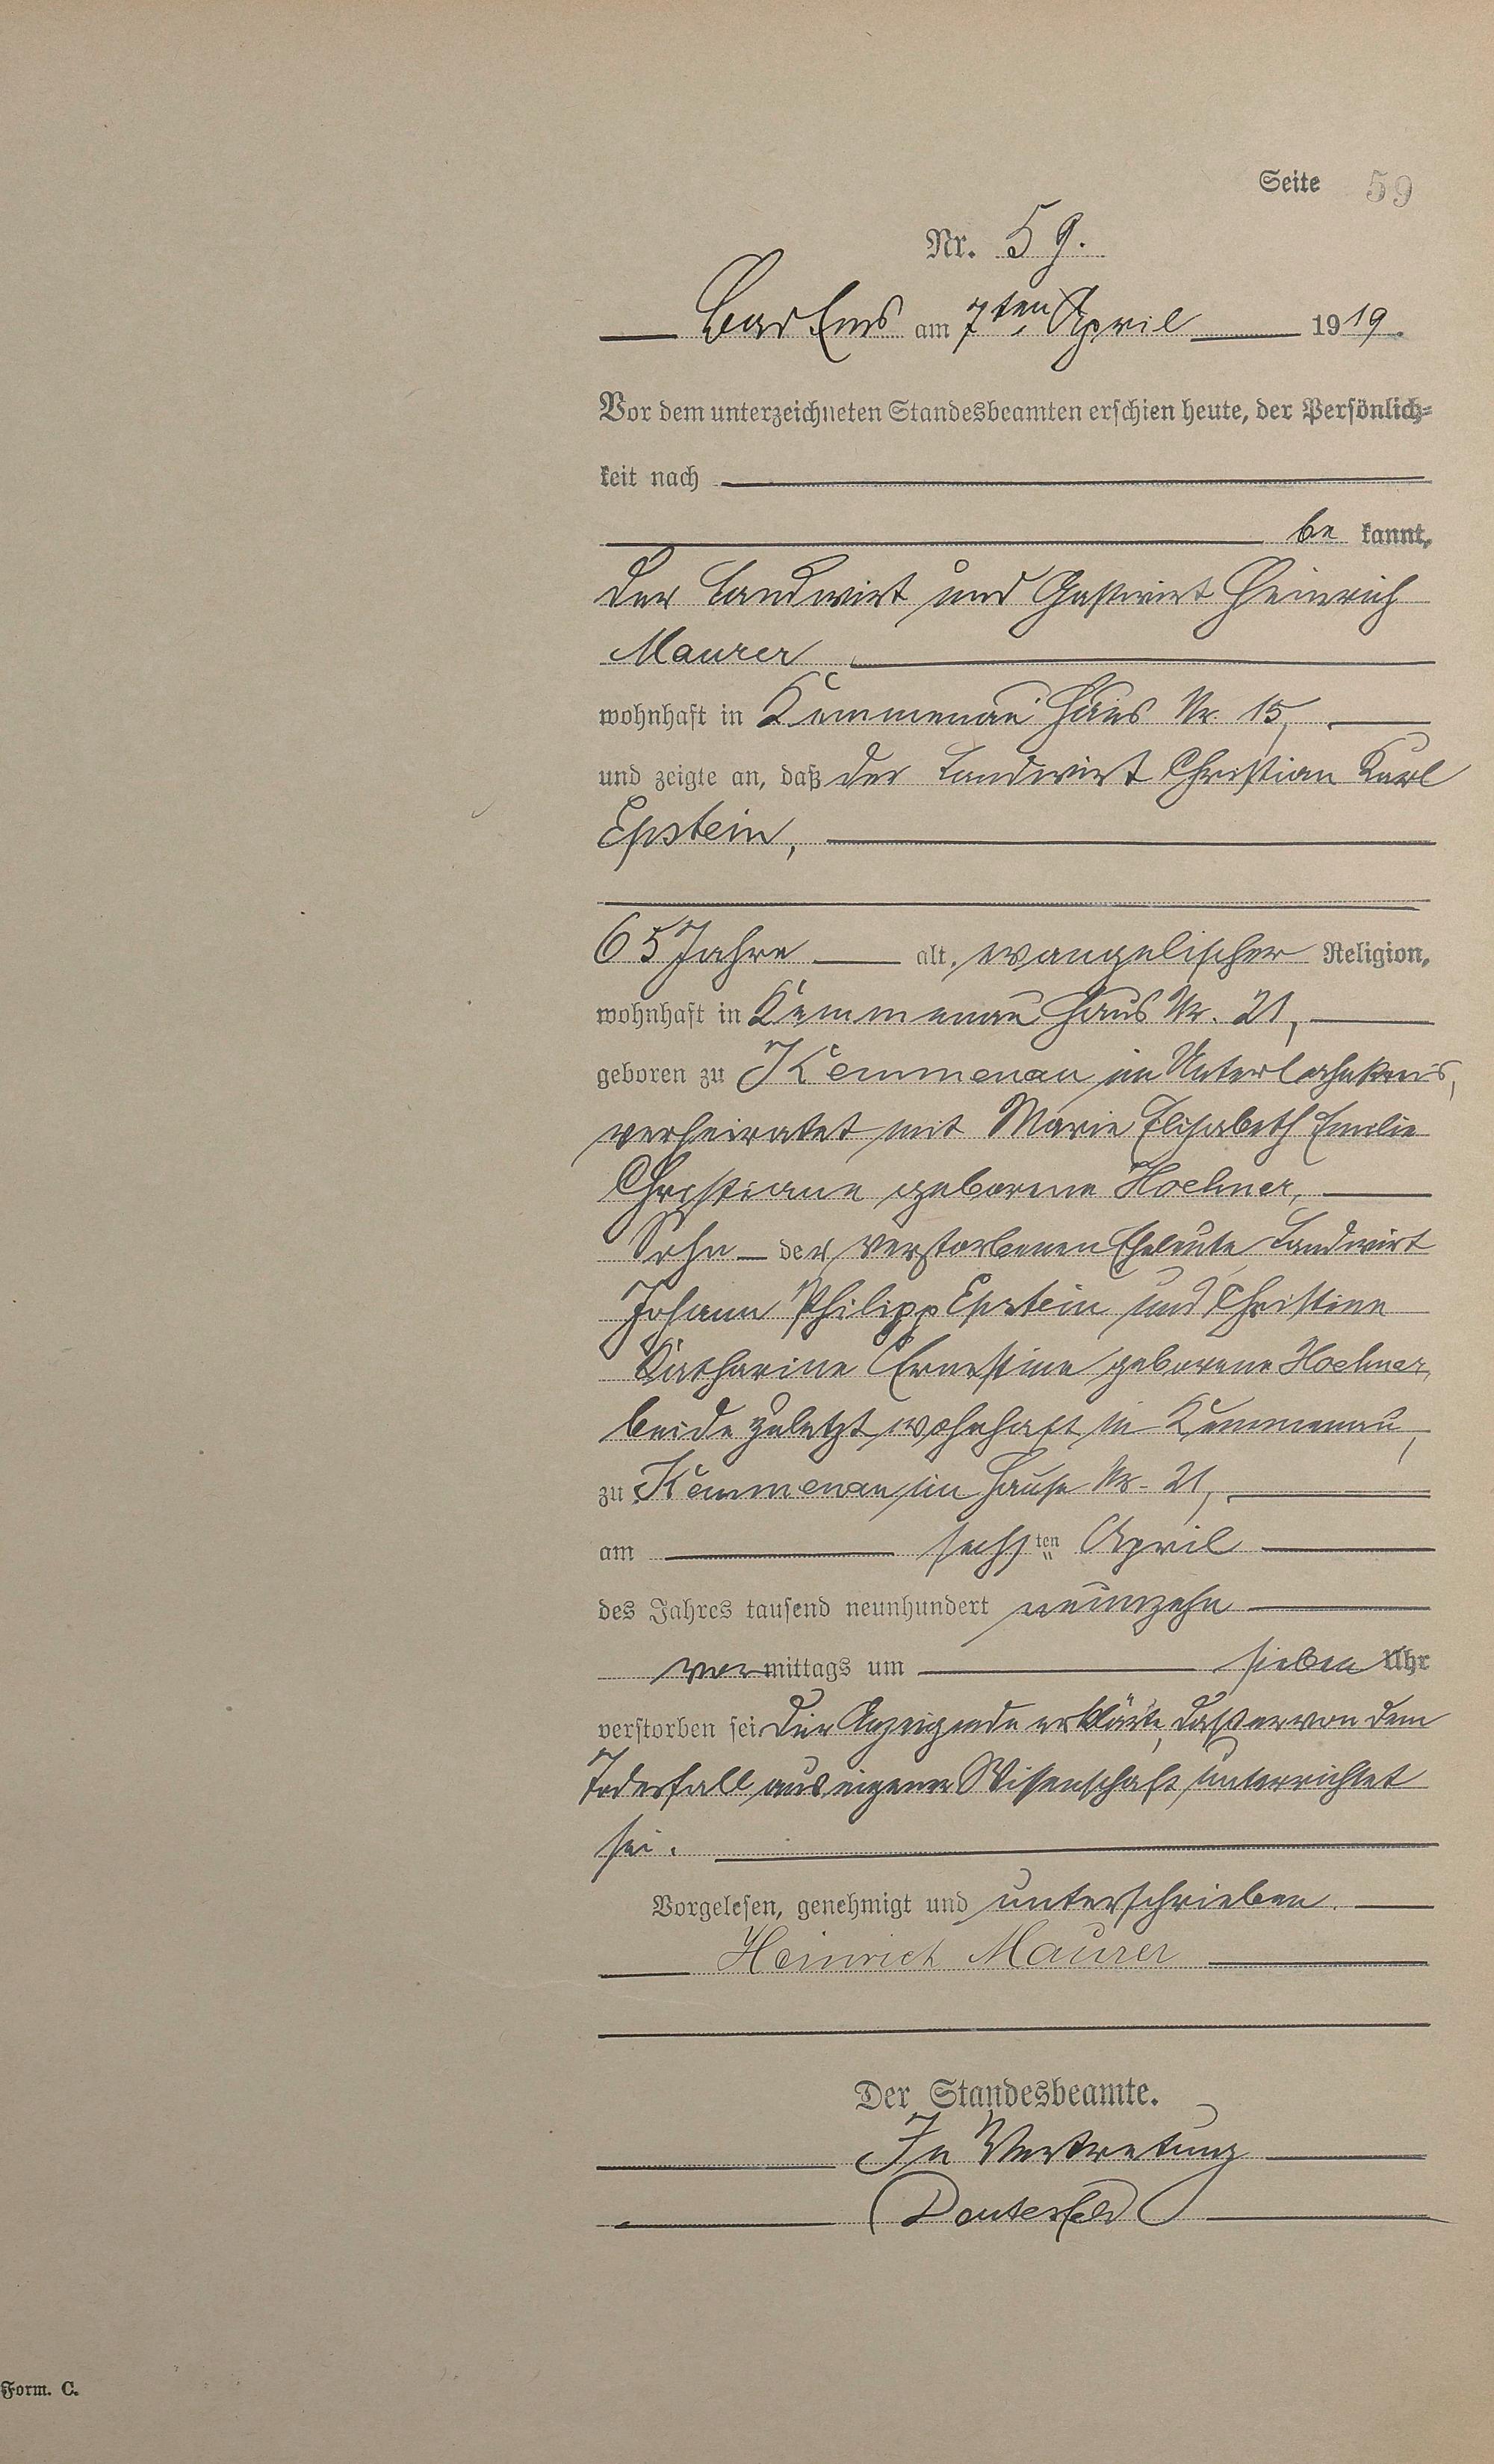 Seite 59
Nr. 59.
Bad Ems am 7ten April 1919.
Vor dem unterzeichneten Standesbeamten erschien heute, der Persönlich-
keit nach
be kannt,
der Landwirt und Gastwirt Heinrich
Maurer
wohnhaft in Kemmenau Haus Nr. 15,
und zeigte an, daß der Landwirt Christian Karl
Epstein,
65 Jahre alt, evangelischer Religion,
wohnhaft in Kemmenau Haus Nr. 21,
geboren zu Kemmenau im Unterlahnkreis,
verheiratet mit Marie Elisabeth Emilie
Christiane geborene Hoehner,
Sohn der verstorbenen Eheleute Landwirt
Johann Philipp Epstein und Christine
Katharine Ernestine geborene Hoehner,
beide zuletzt wohnhaft in Kemmenau,
zu Kemmenau im Hause Nr. 21,
am sechsten April
des Jahres tausend neunhundert neunzehn
vormittags um sieben Uhr
verstorben sei. Der Anzeigende erklärte, daß er von dem
Todesfall aus eigener Wissenschaft unterrichtet
sei.
Vorgelesen, genehmigt und unterschrieben.
Heinrich Maurer
Der Standesbeamte.
In Vertretung
Form. C.